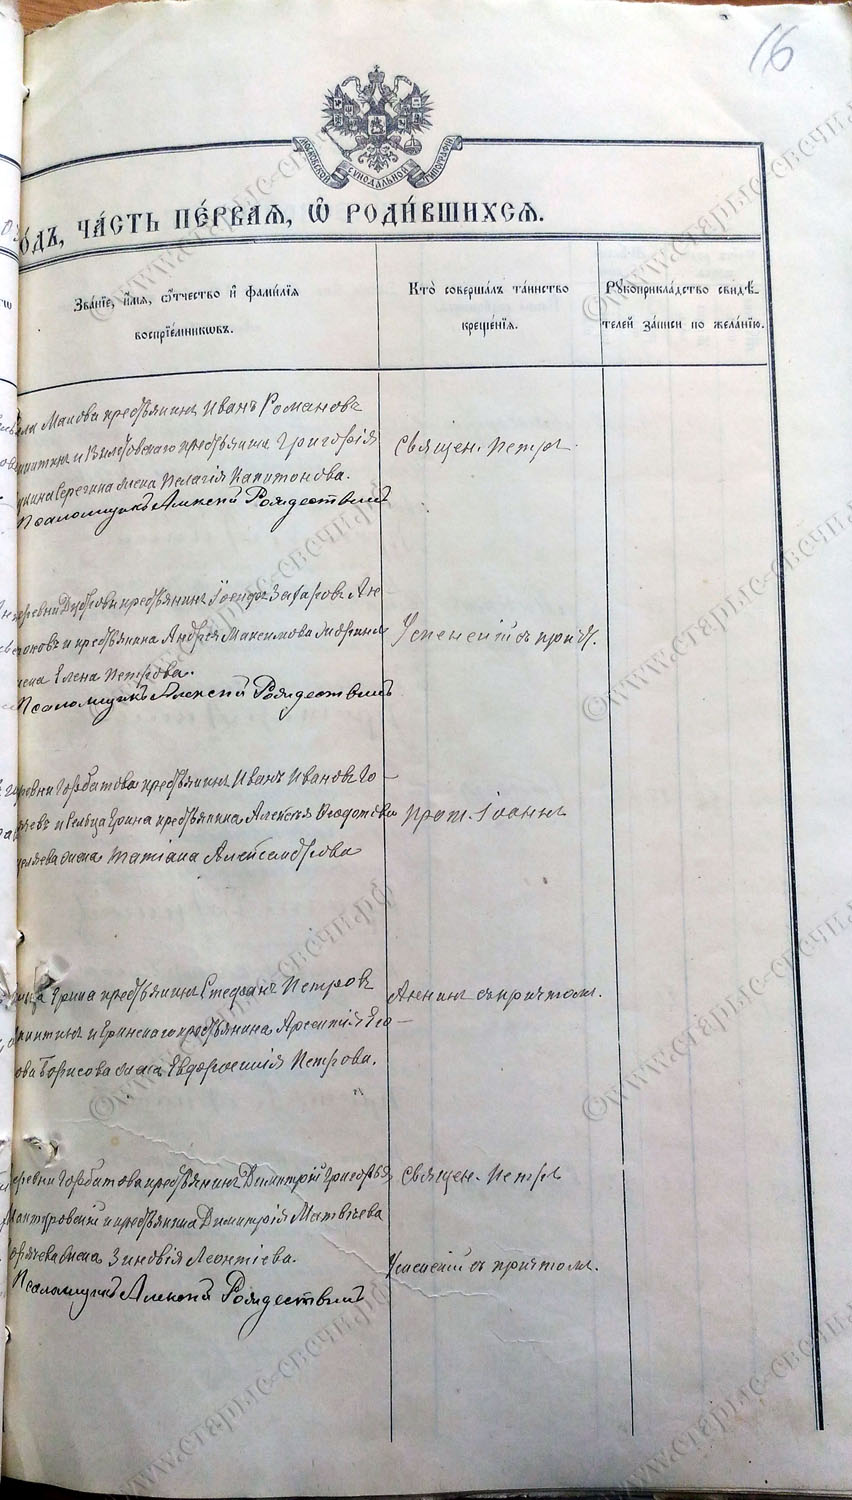 16
МОСКОВСКОЙ СѴНОДАЛЬНОЙ ТИПОГРАФІИ
ОДЪ, ЧА́СТЬ ПЕ́РВАЯ, Ѡ҆ РОДИ́ВШИХСЯ.
Зва́нїе, и҆́мя, ѻ҆́тчество и҆ фами́лїя
воспрїе́мникѡвъ.
Кто̀ соверша́лъ та́инство
креще́нїя.
Рꙋкоприкла́дство свидѣ́-
телей за́писи по жела́нїю.
крестьянинъ Иванъ Романовъ
и крестьянина Григорія
Серегина жена Пелагія Капитонова.
Псаломщикъ Алексій Рождествинъ
Священ. Петръ
крестьянинъ Іосифъ Захаровъ
и крестьянина Андрея Максимова
жена Елена Петрова.
Псаломщикъ Алексій Рождествинъ
Успенскій съ прич.
деревни Горбатова крестьянинъ Иванъ Ивановъ Го-
и Сельца Ерина крестьянина Алексѣя Ѳеодотова
жена Татіана Александрова
Прот. Іоаннъ
Ерина крестьянинъ Стефанъ Петровъ
и Еринскаго крестьянина Арсентія
Борисова жена Евфросинія Петрова.
Аннинъ съ причтомъ.
деревни Горбатова крестьянинъ Димитрій Григорьевъ
и крестьянина Димитрія Матвѣева
жена Зиновія Леонтіева.
Псаломщикъ Алексій Рождествинъ
Священ. Петръ
Успенскій съ причтомъ.
©www.старые-свечи.рф